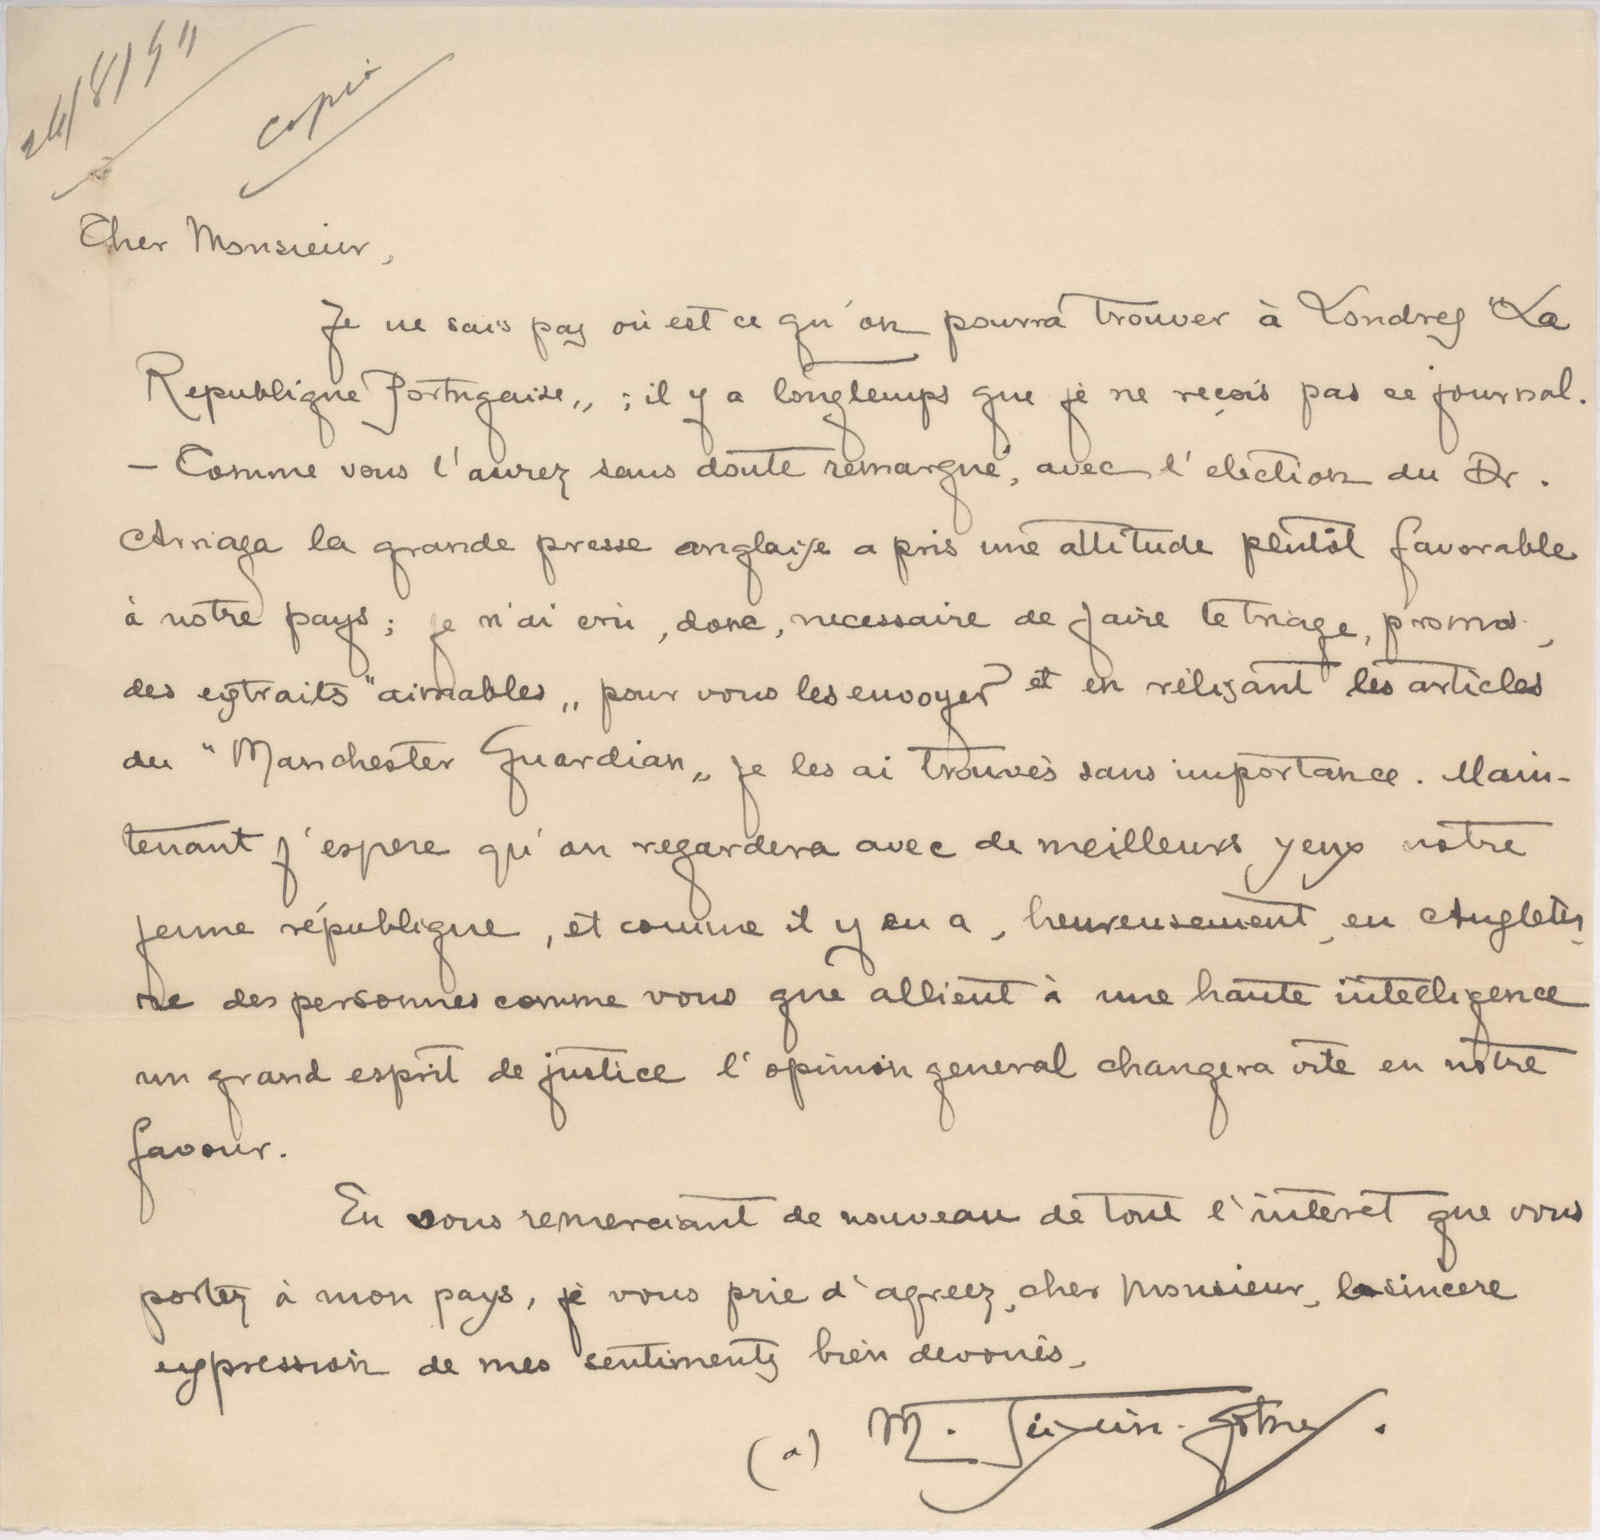 24/8/911
Copia
Cher Monsieur,
Je ne sais pas où est ce qu'on pourra trouver à Londres "La
Republique Portugaise„ ; il y a longtemps que je ne reçois pas ce journal.
— Comme vous l'aurez sans doute remarqué, avec l'election du Dr.
Arriaga la grande presse anglaise a pris une attitude plutôt favorable
à notre pays; je n'ai cru, donc, necessaire de faire le triage, promis,
des extraits "aimables„ pour vous les envoyer et en rélisant les articles
du "Manchester Guardian„ je les ai trouvés sans importance. Main-
tenant j'espere qu'on regardera avec de meilleurs yeux notre
jeune république, et comme il y en a, heureusement, en Angleter-
re des personnes comme vous que allient à une haute intelligence
un grand esprit de justice l'opinion general changera vite en notre
favour.
En vous remerciant de nouveau de tout l'interet que vous
portez à mon pays, je vous prie d'agreez, cher Monsieur, la sincere
expression de mes sentiments bien devoués,
(a) M. Teixeira-Gomes.